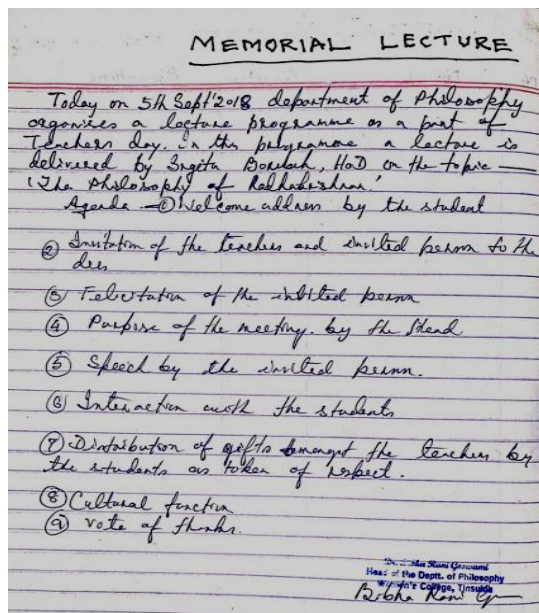 MEMORIAL LECTURE
Today on 5th Sept'2018 department of Philosophy
organises a lecture programme as a part of
Teachers day. In the programme a lecture is
delivered by Borelah, HoD on the topic —
'The Philosophy of Radhakrishnan.'
Agenda — ① Welcome address by the student
② Invitation of the teachers and invited person to the
dies
③ Felicitation of the invited person
④ Purpose of the meeting. by the Head
⑤ Speech by the invited person.
⑥ Interaction with the students
⑦ Distribution of gifts amongst the teachers by
the students as token of respect.
⑧ Cultural function
⑨ Vote of thanks.
Dr. Bibha Rani Goswami
Head of the Deptt. of Philosophy
Women's College, Tinsukia
Bibha Rani